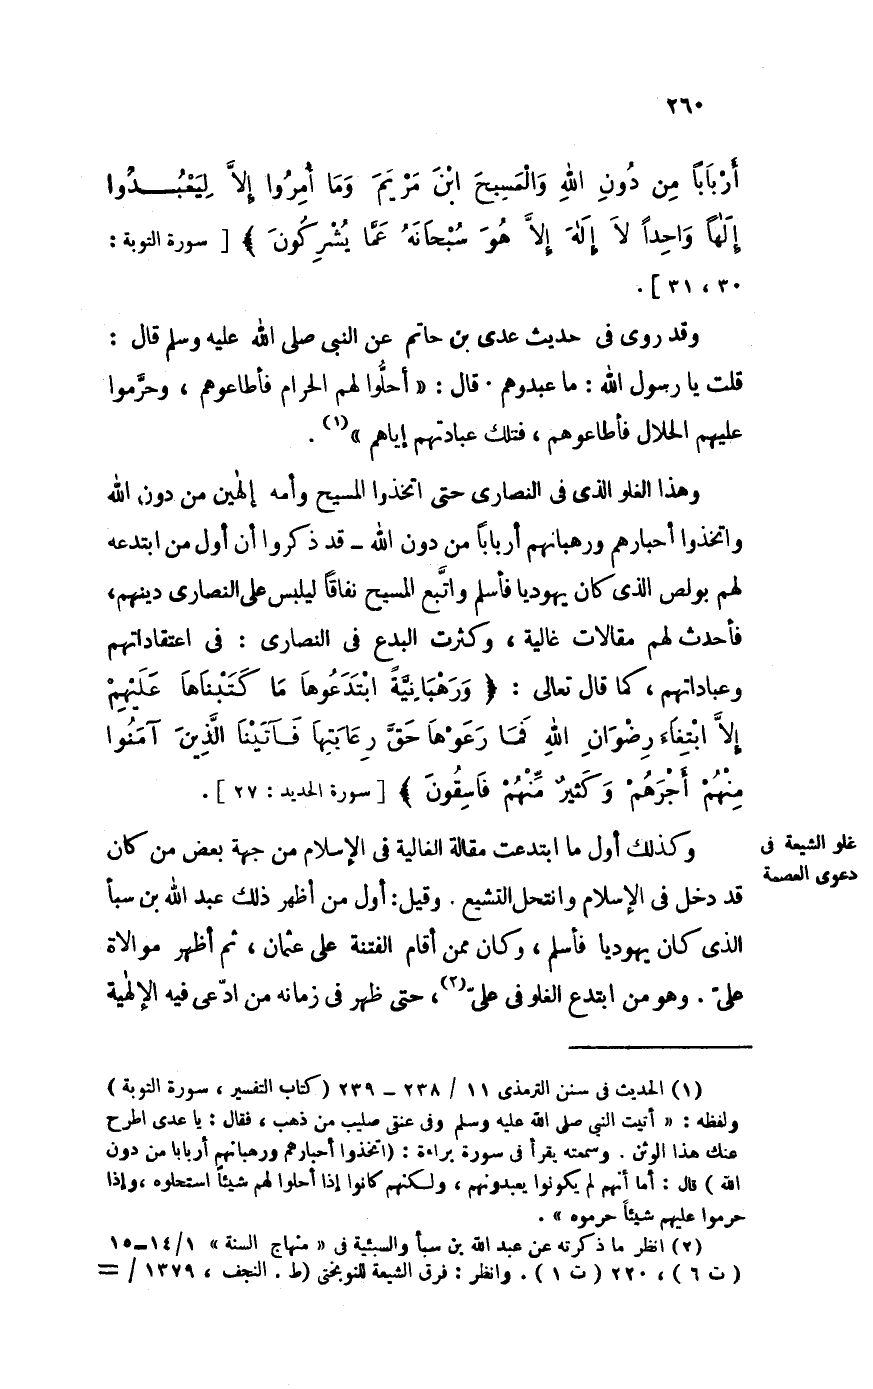 ٢٦٠
أَرْبَاباً مِن دُونِ اللهِ وَالْمَسِيحَ ابْنَ مَرْيَمَ وَمَا أُمِرُوا إِلاَّ لِيَعْبُـــدُوا
إِلَٰهاً وَاحِداً لاَ إِلَٰهَ إِلاَّ هُوَ سُبْحَانَهُ عَمَّا يُشْرِكُونَ ﴾ [ سورة التوبة :
٣٠ ، ٣١ ] .
وقد روى فى حديث عدى بن حاتم عن النبى صلى الله عليه وسلم قال :
قلت يا رسول الله : ما عبدوهم . قال : « أحلُّوا لهم الحرام فأطاعوهم ، وحرَّموا
عليهم الحلال فأطاعوهم ، فتلك عبادتهم إياهم »(١) .
وهذا الغلو الذى فى النصارى حتى اتخذوا المسيح وأمه إلٰهين من دون الله
واتخذوا أحبارهم ورهبانهم أرباباً من دون الله – قد ذكروا أن أول من ابتدعه
لهم بولص الذى كان يهوديا فأسلم واتَّبع المسيح نفاقاً ليلبس على النصارى دينهم،
فأحدث لهم مقالات غالية ، وكثرت البدع فى النصارى : فى اعتقاداتهم
وعباداتهم ، كما قال تعالى : ﴿ وَرَهْبَانِيَّةً ابْتَدَعُوهَا مَا كَتَبْنَاهَا عَلَيْهِمْ
إِلاَّ ابْتِغَاءَ رِضْوَانِ اللهِ فَمَا رَعَوْهَا حَقَّ رِعَايَتِهَا فَآتَيْنَا الَّذِينَ آمَنُوا
مِنْهُمْ أَجْرَهُمْ وَكَثِيرٌ مِّنْهُمْ فَاسِقُونَ ﴾ [ سورة الحديد : ٢٧ ] .
غلو الشيعة فى
دعوى العصمة
وكذلك أول ما ابتدعت مقالة الغالية فى الإسلام من جهة بعض من كان
قد دخل فى الإسلام وانتحل التشيع . وقيل: أول من أظهر ذلك عبد الله بن سبأ
الذى كان يهوديا فأسلم ، وكان ممن أقام الفتنة على عثمان ، ثم أظهر موالاة
علىّ . وهو من ابتدع الغلو فى علىّ(٢)، حتى ظهر فى زمانه من ادّعى فيه الإلٰهية
(١) الحديث فى سنن الترمذى ١١ / ٢٣٨ – ٢٣٩ ( كتاب التفسير ، سورة التوبة )
ولفظه : « أتيت النبى صلى الله عليه وسلم وفى عنقى صليب من ذهب ، فقال : يا عدى اطرح
عنك هذا الوثن . وسمعته يقرأ فى سورة براءة : (اتخذوا أحبارهم ورهبانهم أربابا من دون
الله ) قال : أما أنهم لم يكونوا يعبدونهم ، ولكنهم كانوا إذا أحلوا لهم شيئاً استحلوه ،وإذا
حرموا عليهم شيئاً حرموه » .
(٢) انظر ما ذكرته عن عبد الله بن سبأ والسبئية فى « منهاج السنة » ١٤/١–١٥
( ت ٦ ) ، ٢٢٠ ( ت ١ ) . وانظر : فرق الشيعة للنوبختى (ط . النجف ، ١٣٧٩ / =